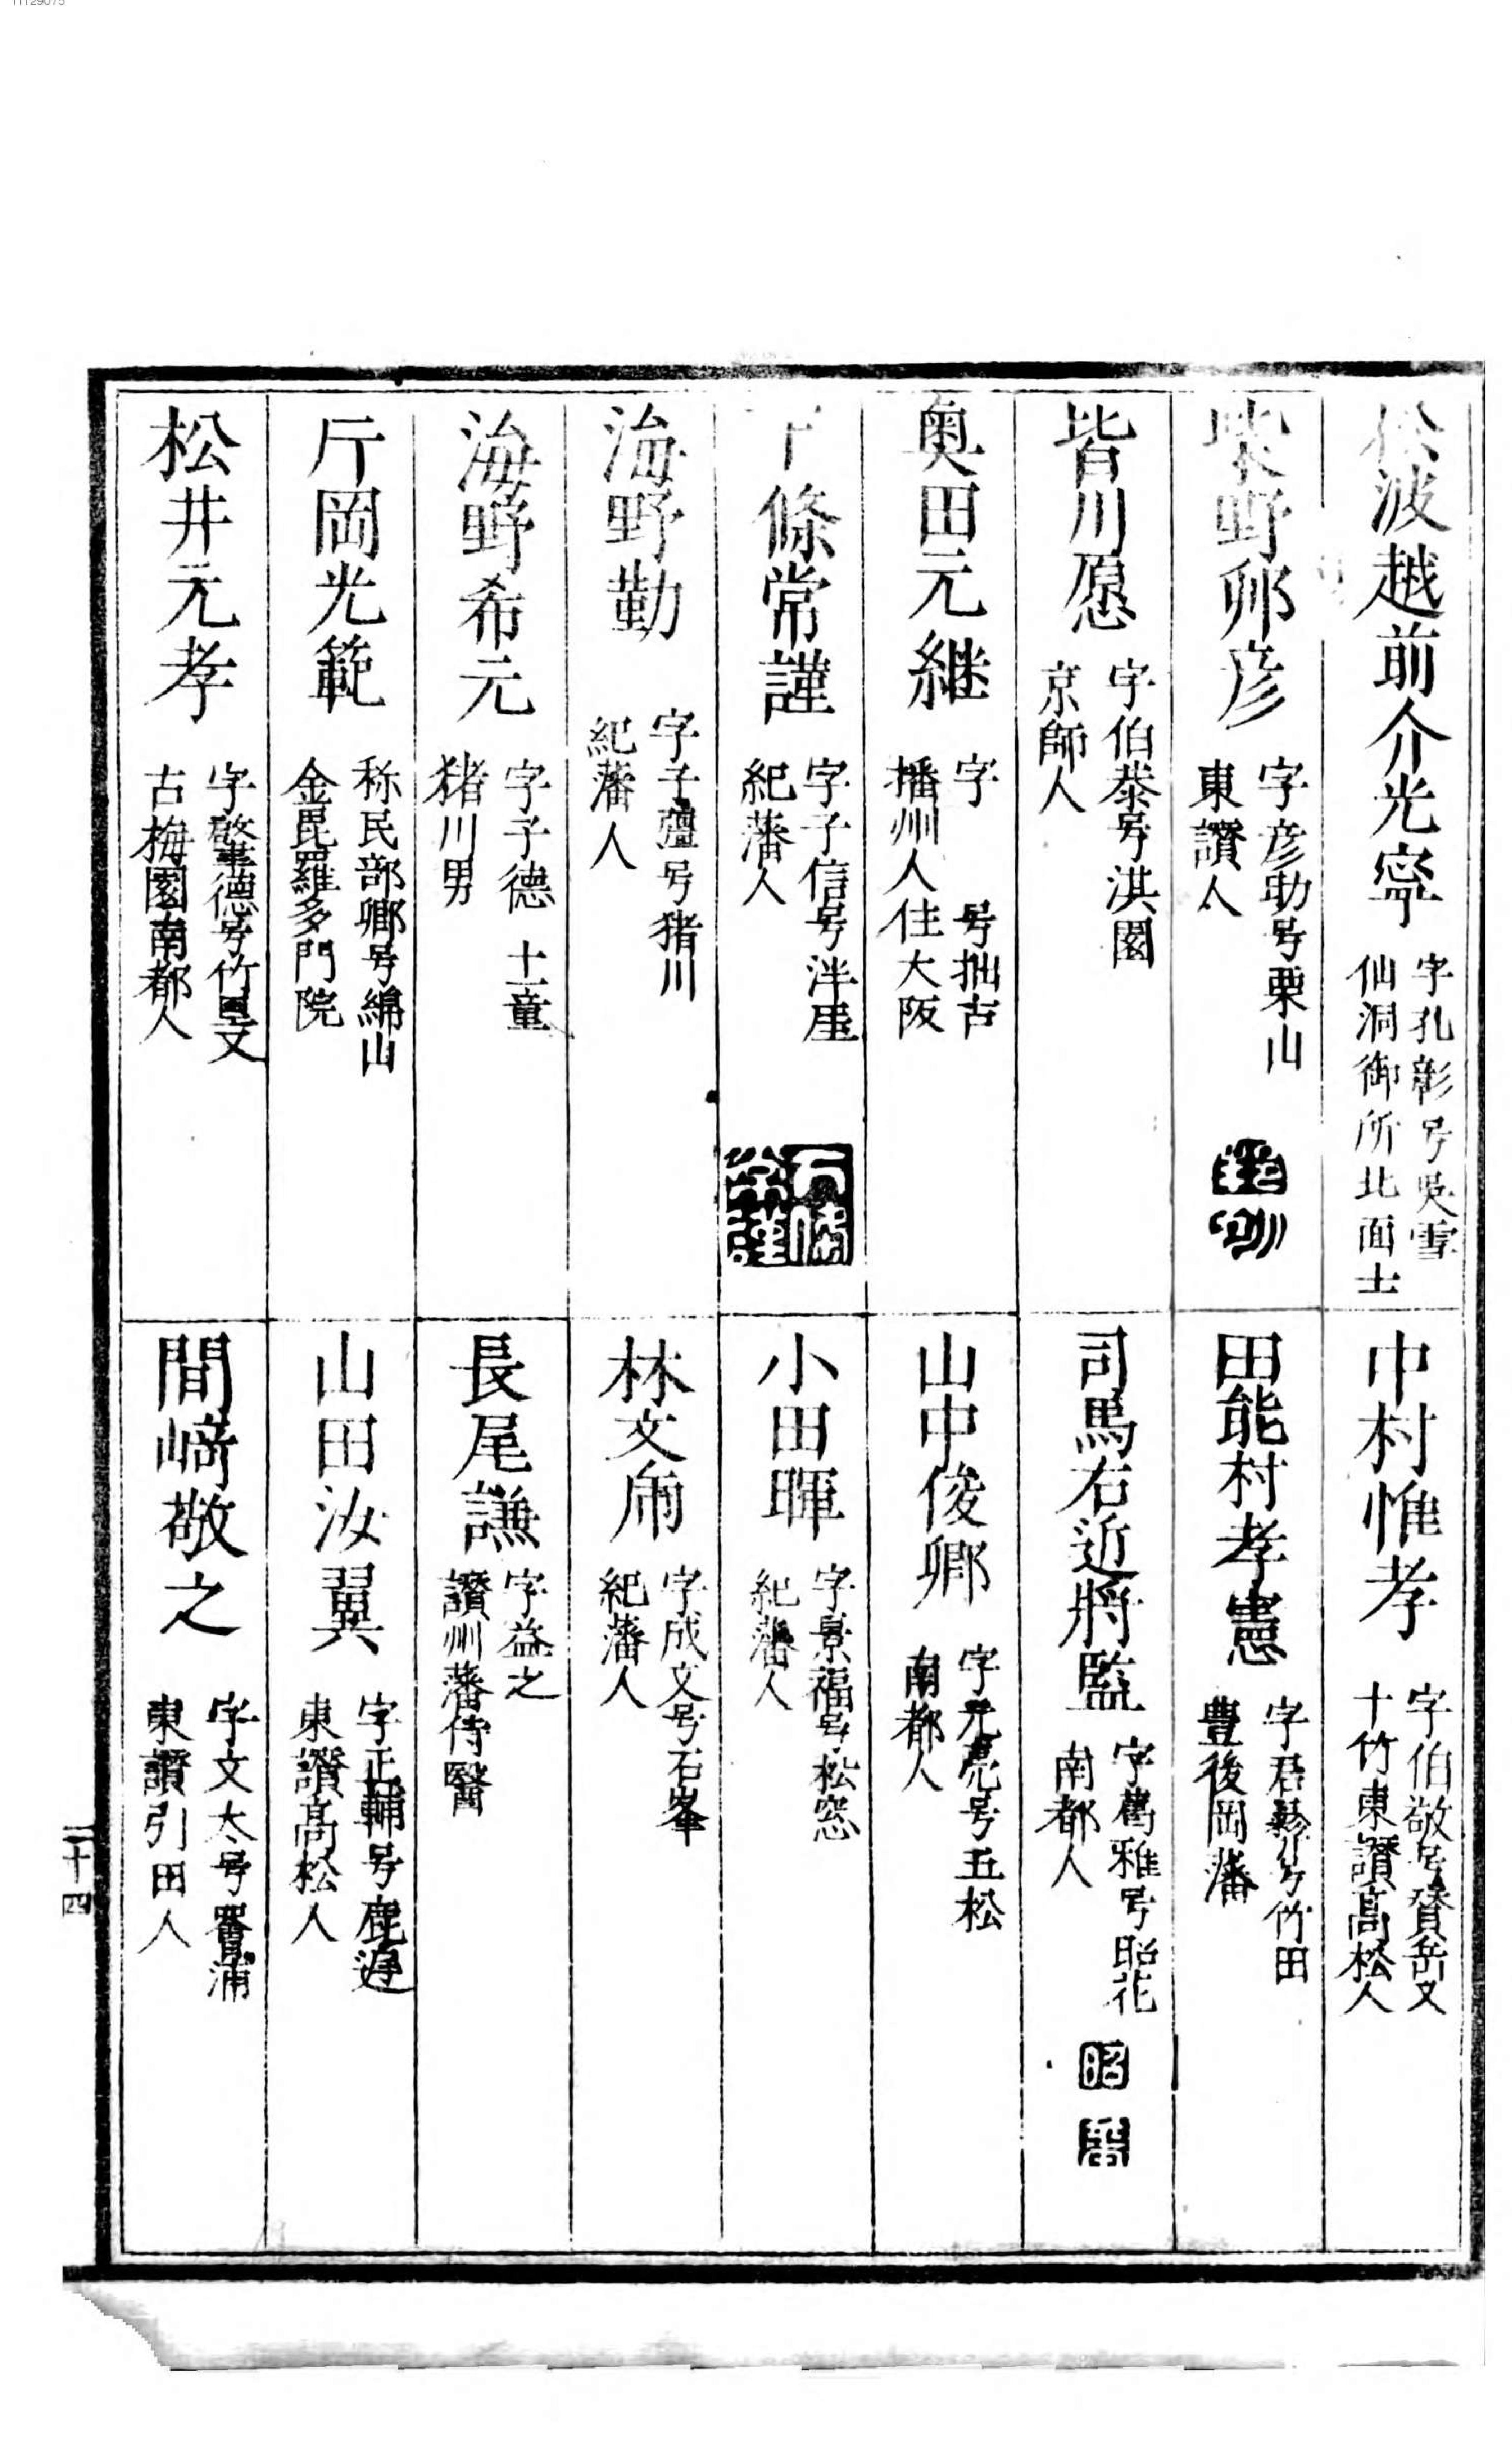 11129075
松波越前介光寧
字孔彰号吳雪
仙洞御所北面士
柴野邦彦
字彦助号栗山
東讃人
皆川愿
字伯恭号淇園
京師人
奥田元継
字 号拙古
播州人住大阪
條常謹
字子信号泮崖
紀藩人
海野勤
字子彊号猪川
紀藩人
海野希元
字子德 十一童
猪川男
片岡光範
称民部卿号綿山
金毘羅多門院
松井元孝
字肇德号竹里又
古梅園南都人
中村惟孝
字伯敬号賛岳又
十竹東讃髙松人
田能村孝憲
字君彜号竹田
豊後岡藩
司馬右近将監
字萬雅号昭花
南都人
昭
山中俊卿
字元亮号五松
南都人
小田暉
字景福号松窓
紀藩人
林文
字成文号石峯
紀藩人
長尾謙
字益之
讃州藩侍醫
山田汝翼
字正輔号鹿
東讃髙松人
間﨑敬之
字文太号浦
東讃引田人
二十四